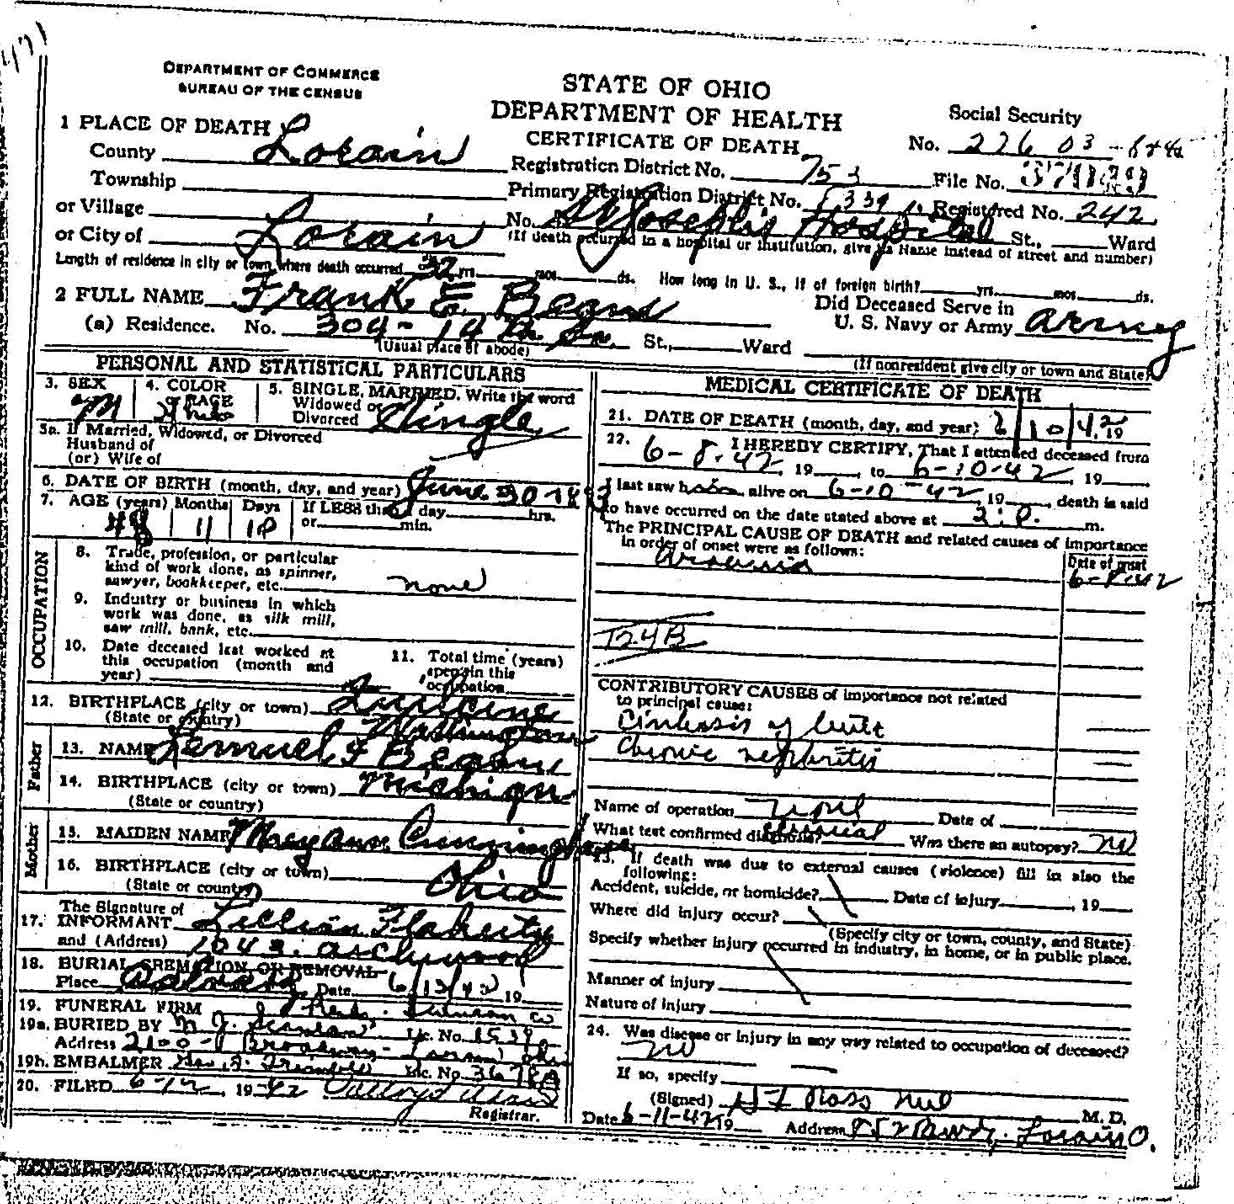 DEPARTMENT OF COMMERCE
BUREAU OF THE CENSUS
STATE OF OHIO
DEPARTMENT OF HEALTH
CERTIFICATE OF DEATH
Social Security
No. 226 03
1 PLACE OF DEATH
County Lorain
Registration District No. 753
File No.
Township
Primary Registration District No.
Registered No. 242
or Village
No. St Joseph's Hospital St., Ward
or City of Lorain
(If death occurred in a hospital or institution, give its Name instead of street and number)
Length of residence in city or town where death occurred 32 yrs. mos. ds. How long in U. S., if of foreign birth? yrs. mos. ds.
2 FULL NAME Frank E. Beans
Did Deceased Serve in
U. S. Navy or Army Army
(a) Residence. No. 304 - 14th St., Ward
(Usual place of abode)
(If nonresident give city or town and State)
PERSONAL AND STATISTICAL PARTICULARS
3. SEX M
4. COLOR or RACE
5. SINGLE, MARRIED, Write the word
Widowed or
Divorced Single
5a. If Married, Widowed, or Divorced
Husband of
(or) Wife of
6. DATE OF BIRTH (month, day, and year) June
7. AGE (years) Months Days If LESS than 1 day hrs.
48 11 or min.
OCCUPATION
8. Trade, profession, or particular
kind of work done, as spinner,
sawyer, bookkeeper, etc. none
9. Industry or business in which
work was done, as silk mill,
saw mill, bank, etc.
10. Date deceased last worked at
this occupation (month and
year)
11. Total time (years)
spent in this
occupation
12. BIRTHPLACE (city or town) Quilcene
(State or country) Washington
Father
13. NAME Lemuel
14. BIRTHPLACE (city or town) Michigan
(State or country)
Mother
15. MAIDEN NAME Mary Ann Cunningham
16. BIRTHPLACE (city or town)
(State or country) Ohio
The Signature of
17. INFORMANT Lillian Flaherty
and (Address) 1043
18. BURIAL CREMATION OR REMOVAL
Place Calvary Date 6/13/42 19
19. FUNERAL FIRM
19a. BURIED BY Lic. No. 1539
Address 2100 Broadway Lorain Ohio
19b. EMBALMER Lic. No.
20. FILED 6-12 1942
Registrar.
MEDICAL CERTIFICATE OF DEATH
21. DATE OF DEATH (month, day, and year) 6/10/42 19
22. I HEREBY CERTIFY, That I attended deceased from
6-8-42, 19 , to 6-10-42, 19
I last saw him alive on 6-10-42 19 , death is said
to have occurred on the date stated above at 2: P. m.
The PRINCIPAL CAUSE OF DEATH and related causes of importance
in order of onset were as follows:
Date of onset
124B
CONTRIBUTORY CAUSES of importance not related
to principal cause:
Chronic nephritis
Name of operation none Date of
What test confirmed diagnosis? clinical Was there an autopsy? no
23. If death was due to external causes (violence) fill in also the
following:
Accident, suicide, or homicide? Date of injury , 19
Where did injury occur?
(Specify city or town, county, and State)
Specify whether injury occurred in industry, in home, or in public place.
Manner of injury
Nature of injury
24. Was disease or injury in any way related to occupation of deceased?
no
If so, specify
(Signed) Ross M. D.
Date 6-11-42 19 Address Lorain O.